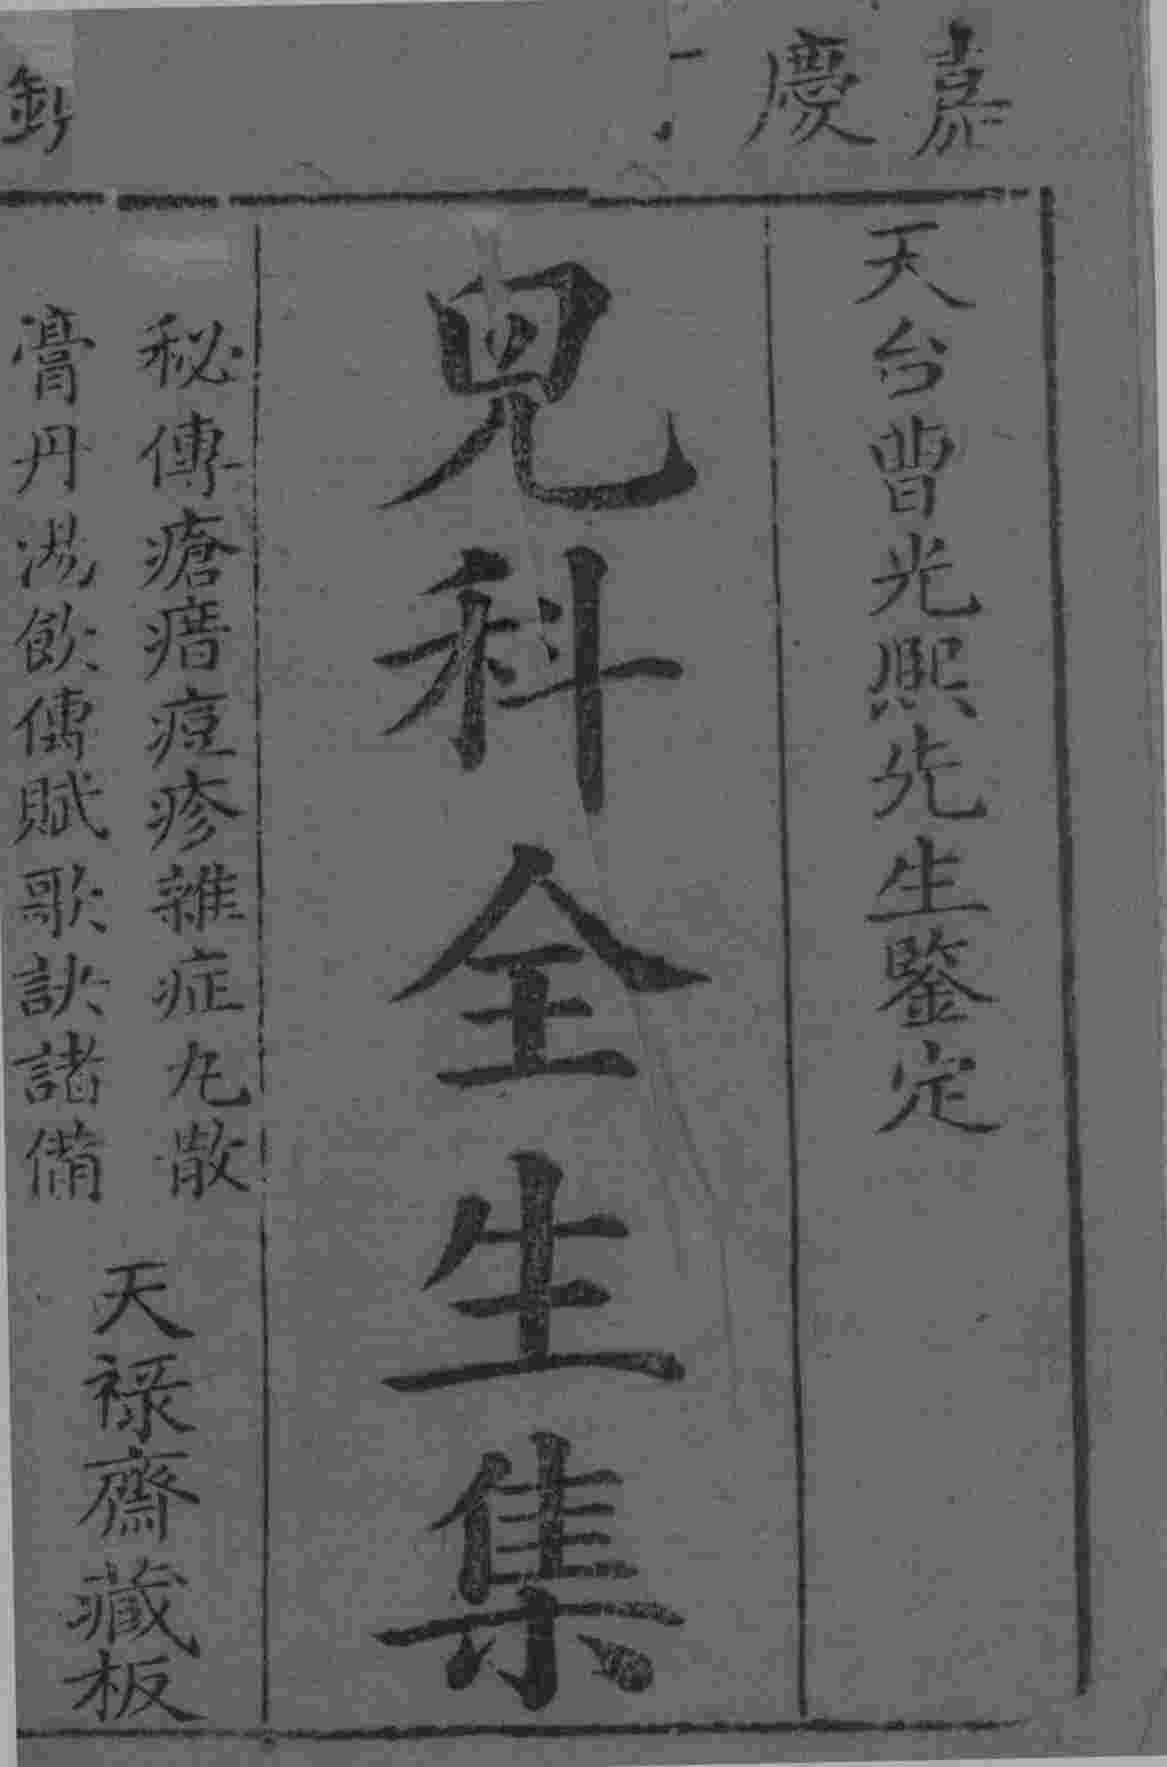 嘉慶
天台曾光熙先生鑒定
兒科全生集
秘傳瘡瘄痘疹雜症丸散
膏丹湯飲傳賦歌訣諸備
天祿齋藏板